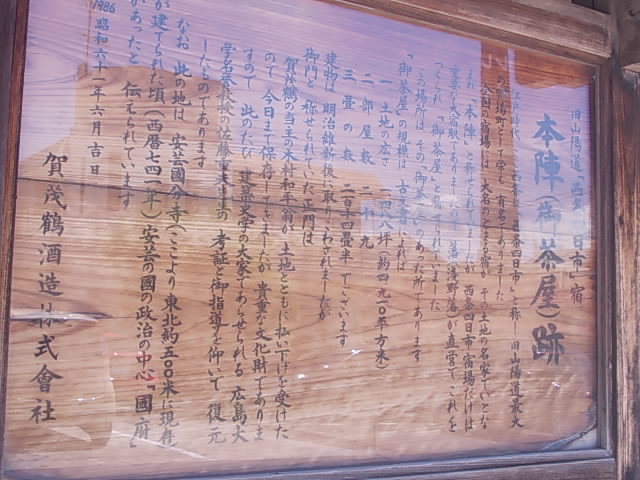 旧山陽道「西条四日市」宿
本陣(御茶屋)跡
の宿場町として栄え 有名でありました
全国の宿場には 大名のとまる宿が その土地の名家でいとな
まれ「本陣」と称せられてましたが 西条四日市宿場だけは
重要な本宿駅でありましたので 藩(浅野藩)が直営でこれを
つくられ「御茶屋」と
この場所は その「御茶屋」のあった所であります
「御茶屋」の規模は 古文書によれば
一 土地の広さ
二 部屋数 二十九
三 畳の数 二百十四畳半 でございます
建物は 明治維新後に取りこわされましたが
御門と称せられていた正門は
賀茂鶴の当主の木村和平翁が 土地とともに払い下げを受けた
ので 今日まで保存してきましたが 貴重な文化財でありま
すので 此のたび 建築史学の大家であらせられる 広島大
学名誉教授の佐藤 先生の 考証と御指導を仰いで 復元
したものであります
なお 此の地は 安芸国分寺(ここより東北約五〇〇米に現在)
が建てられた頃(西暦七四一年)安芸の國の政治の中心「國府」
があったと 伝えられています
1986 昭和六十一年六月吉日
賀茂鶴酒造株式會社